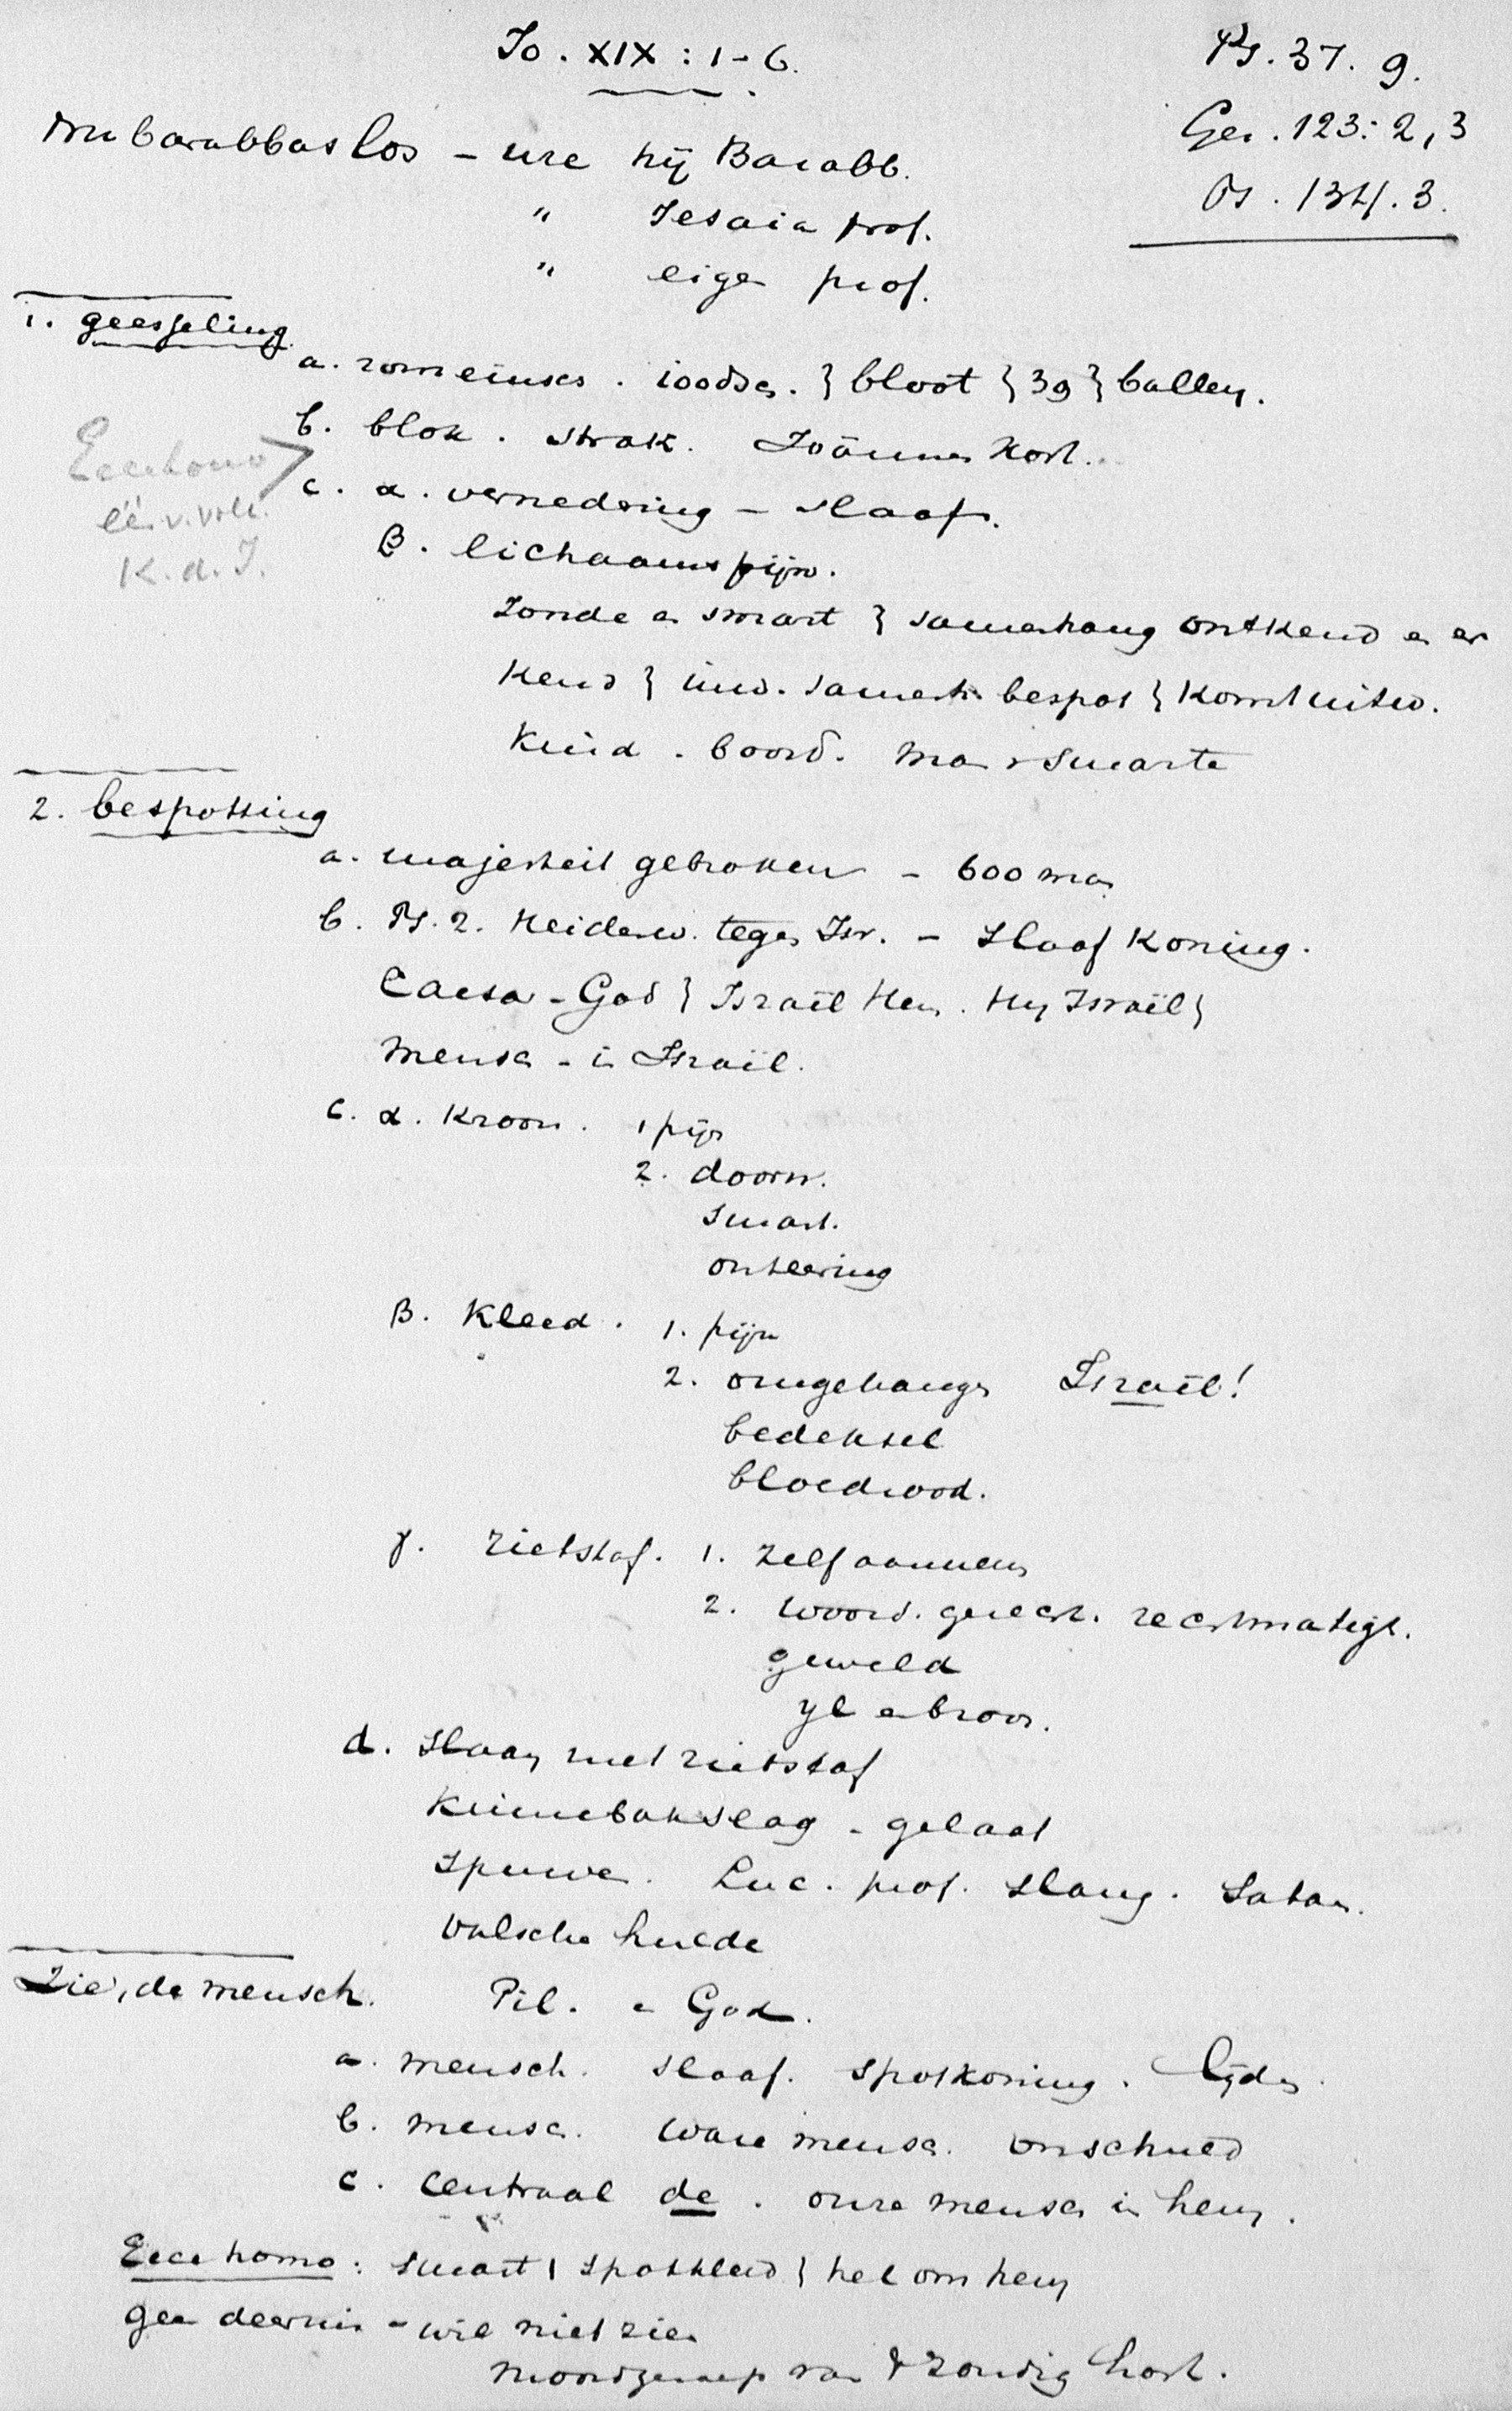 Jo. XIX : 1-6.
Ps. 37. 9.
Gez. 123: 2, 3
Ps. 134. 3.
nu barabbas los - ure hij Barabb.
" Jesaia prof.
" eige prof.
1. geesseling
a. romeinsch. joodsch. } bloot } 39 } balley.
b. blok. strak. Joännes kort.
Ecce homo
K. d. J.
c. α. vernedering - slaaf.
β. lichaamspijn.
Zonde en smart } samenhang ontkend en er
kend } inw. samenh. bespot } komt uitw.
Kind. boord. man v smarte
2. bespotting
a. majesteit gebroken - 600 man
b. Ps. 2. Heidenw. tegen Isr. - Slaaf Koning.
Caesar - God } Israël Hem. Hij Israël }
mensch - in Israël.
c. α. Kroon. 1 pijn
2. doorn.
smart.
onteering
β. Kleed. 1. pijn
2. omgehangen Israël!
bedeksel
bloedrood.
γ. rietstaf. 1. zelf aannemen
2. woord. gerecht. rechtmatigh.
geweld
ijl en broos.
d. Slaan met rietstaf
Kinnebakslag - gelaat
Spuwen. Luc. prof. slang. Satan.
valsche hulde
Zie, de mensch. Pil. en God.
a. mensch. slaaf. spotkoning. lijden.
b. mensch. ware mensch. onschuld
c. centraal de. onze mensch in hem.
Ecce homo: smart } spotkleed } hel om hem
geen deernis - wil niet zien
moordgeroep van 't zondig hart.